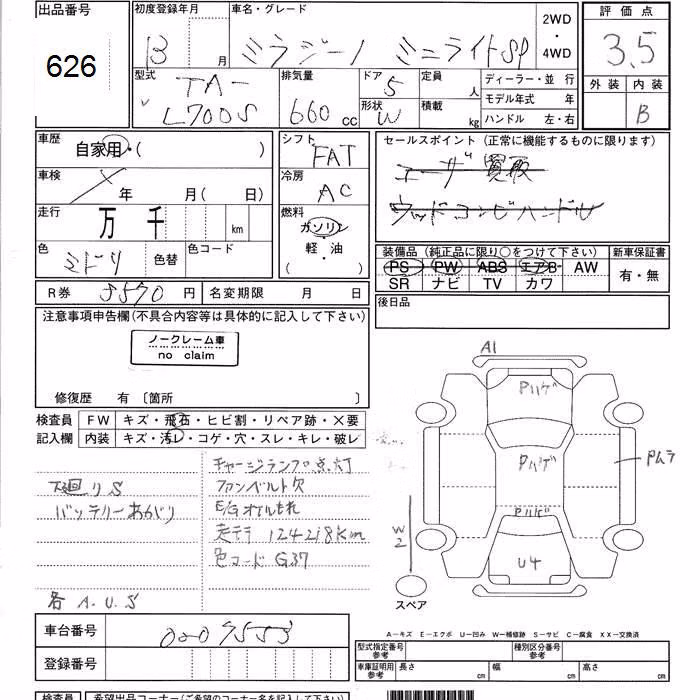 出品番号
626
初度登録年月
13 年 月
車名・グレード
ミラジーノ ミニライトSP
2WD
・
4WD
評価点
3.5
外装 内装
B
型式
TA-
L700S
排気量
660 cc
ドア
5
形状
W
定員
人
積載
kg
ディーラー・並行
モデル年式 年
ハンドル 左・右
車歴
自家用・( )
車検
年 月( 日)
走行
万 千 km
色
ミドリ
色替
色コード
シフト
FAT
冷房
AC
燃料
ガソリン
・
軽・油
( )
セールスポイント (正常に機能するものに限ります)
ユーザー買取
ウッドコンビハンドル
装備品 (純正品に限り○をつけて下さい)
PS PW ABS エアB AW
SR ナビ TV カワ
新車保証書
有・無
後日品
R券 8590 円
名変期限 月 日
注意事項申告欄(不具合内容等は具体的に記入して下さい)
ノークレーム車
no claim
修復歴 有 〔箇所 〕
検査員
記入欄
FW キズ・飛石・ヒビ割・リペア跡・×要
内装 キズ・汚レ・コゲ・穴・スレ・キレ・破レ
下廻りS
バッテリーあがり
各 A.U.S
チャージランプ点灯
ファンベルト欠
E/Gオイルもれ
走テラ 124218km
色コード G37
A1
Pハゲ
Pハゲ
Pハゲ
U4
Pムラ
W2
スペア
車台番号
0009553
登録番号
A=キズ E=エクボ U=凹み W=補修跡 S=サビ C=腐食 XX=交換済
型式指定番号
参考
種別区分番号
参考
車庫証明用
参考
長さ cm 幅 cm 高さ cm
検査員
希望出品コーナー(ご希望のコーナー名を記入して下さい)